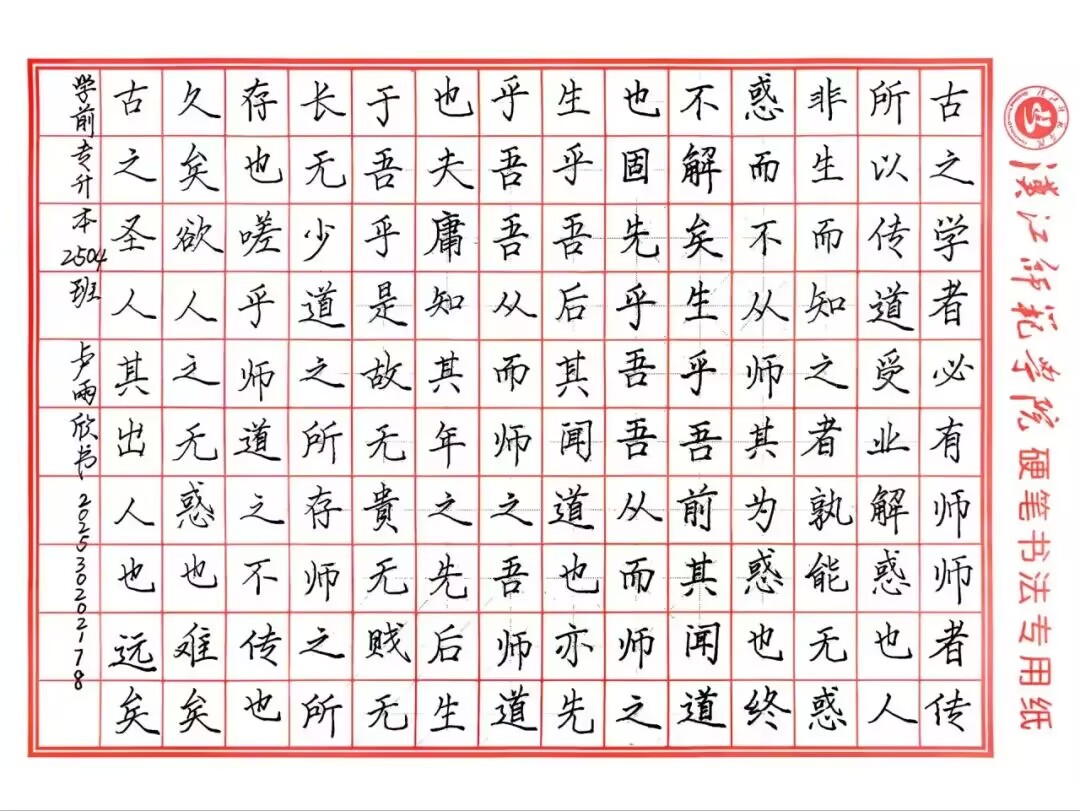 漢江师範学院硬笔书法专用纸
古之学者必有师师者传
所以传道受业解惑也人
非生而知之者孰能无惑
惑而不从师其为惑也终
不解矣生乎吾前其闻道
也固先乎吾吾从而师之
生乎吾后其闻道也亦先
乎吾吾从而师之吾师道
也夫庸知其年之先后生
于吾乎是故无貴无贱无
长无少道之所存师之所
存也嗟乎师道之不传也
久矣欲人之无惑也难矣
古之圣人其出人也远矣
学前专升本2504班 卢雨欣书 202530202178